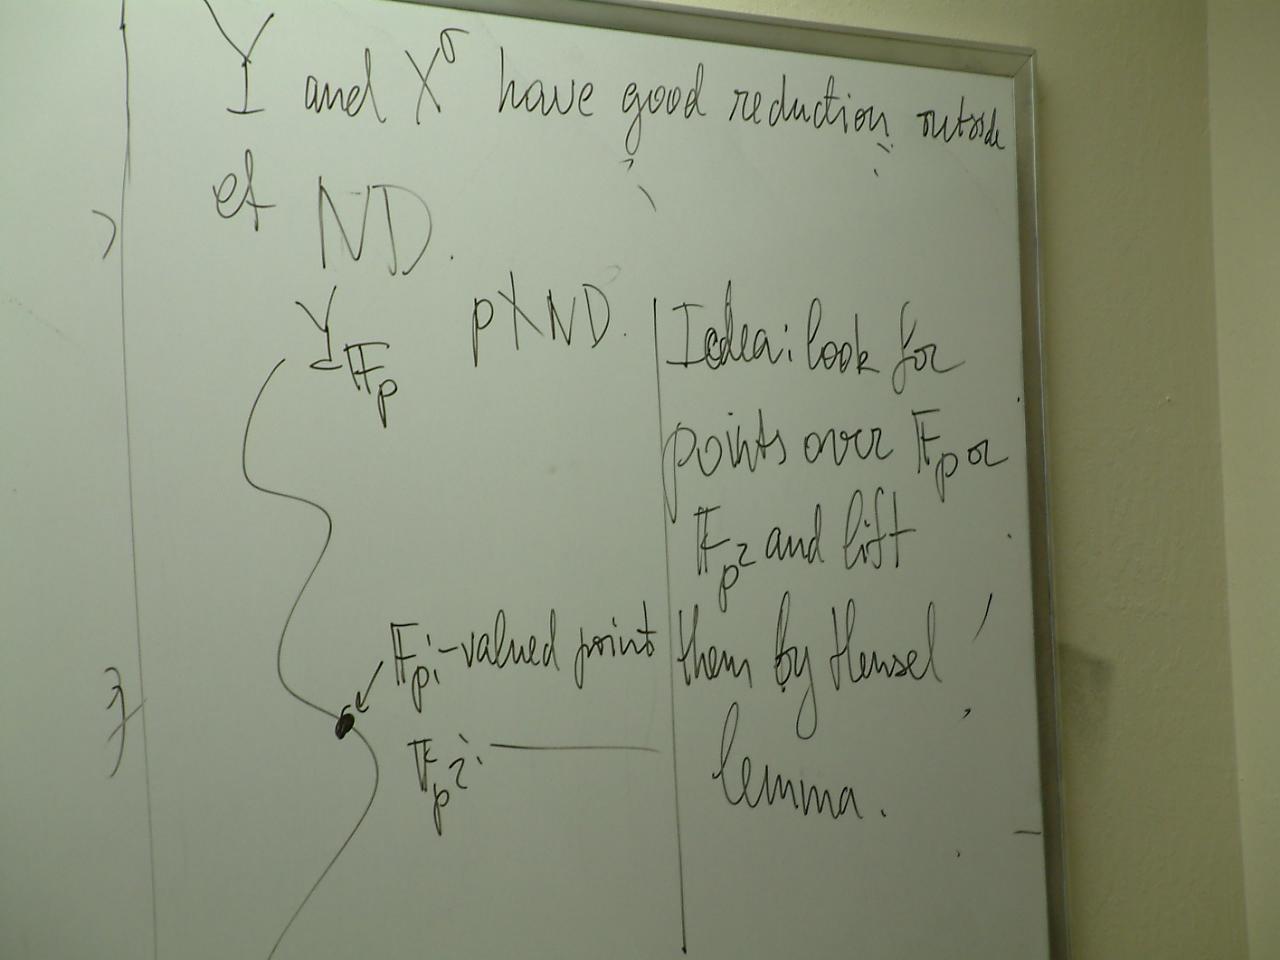 Y and X^σ have good reduction outside
of ND.
Y_𝔽_p p∤ND.
𝔽_p-valued point
𝔽_p²
Idea: look for
points over 𝔽_p or
𝔽_p² and lift
them by Hensel
lemma.